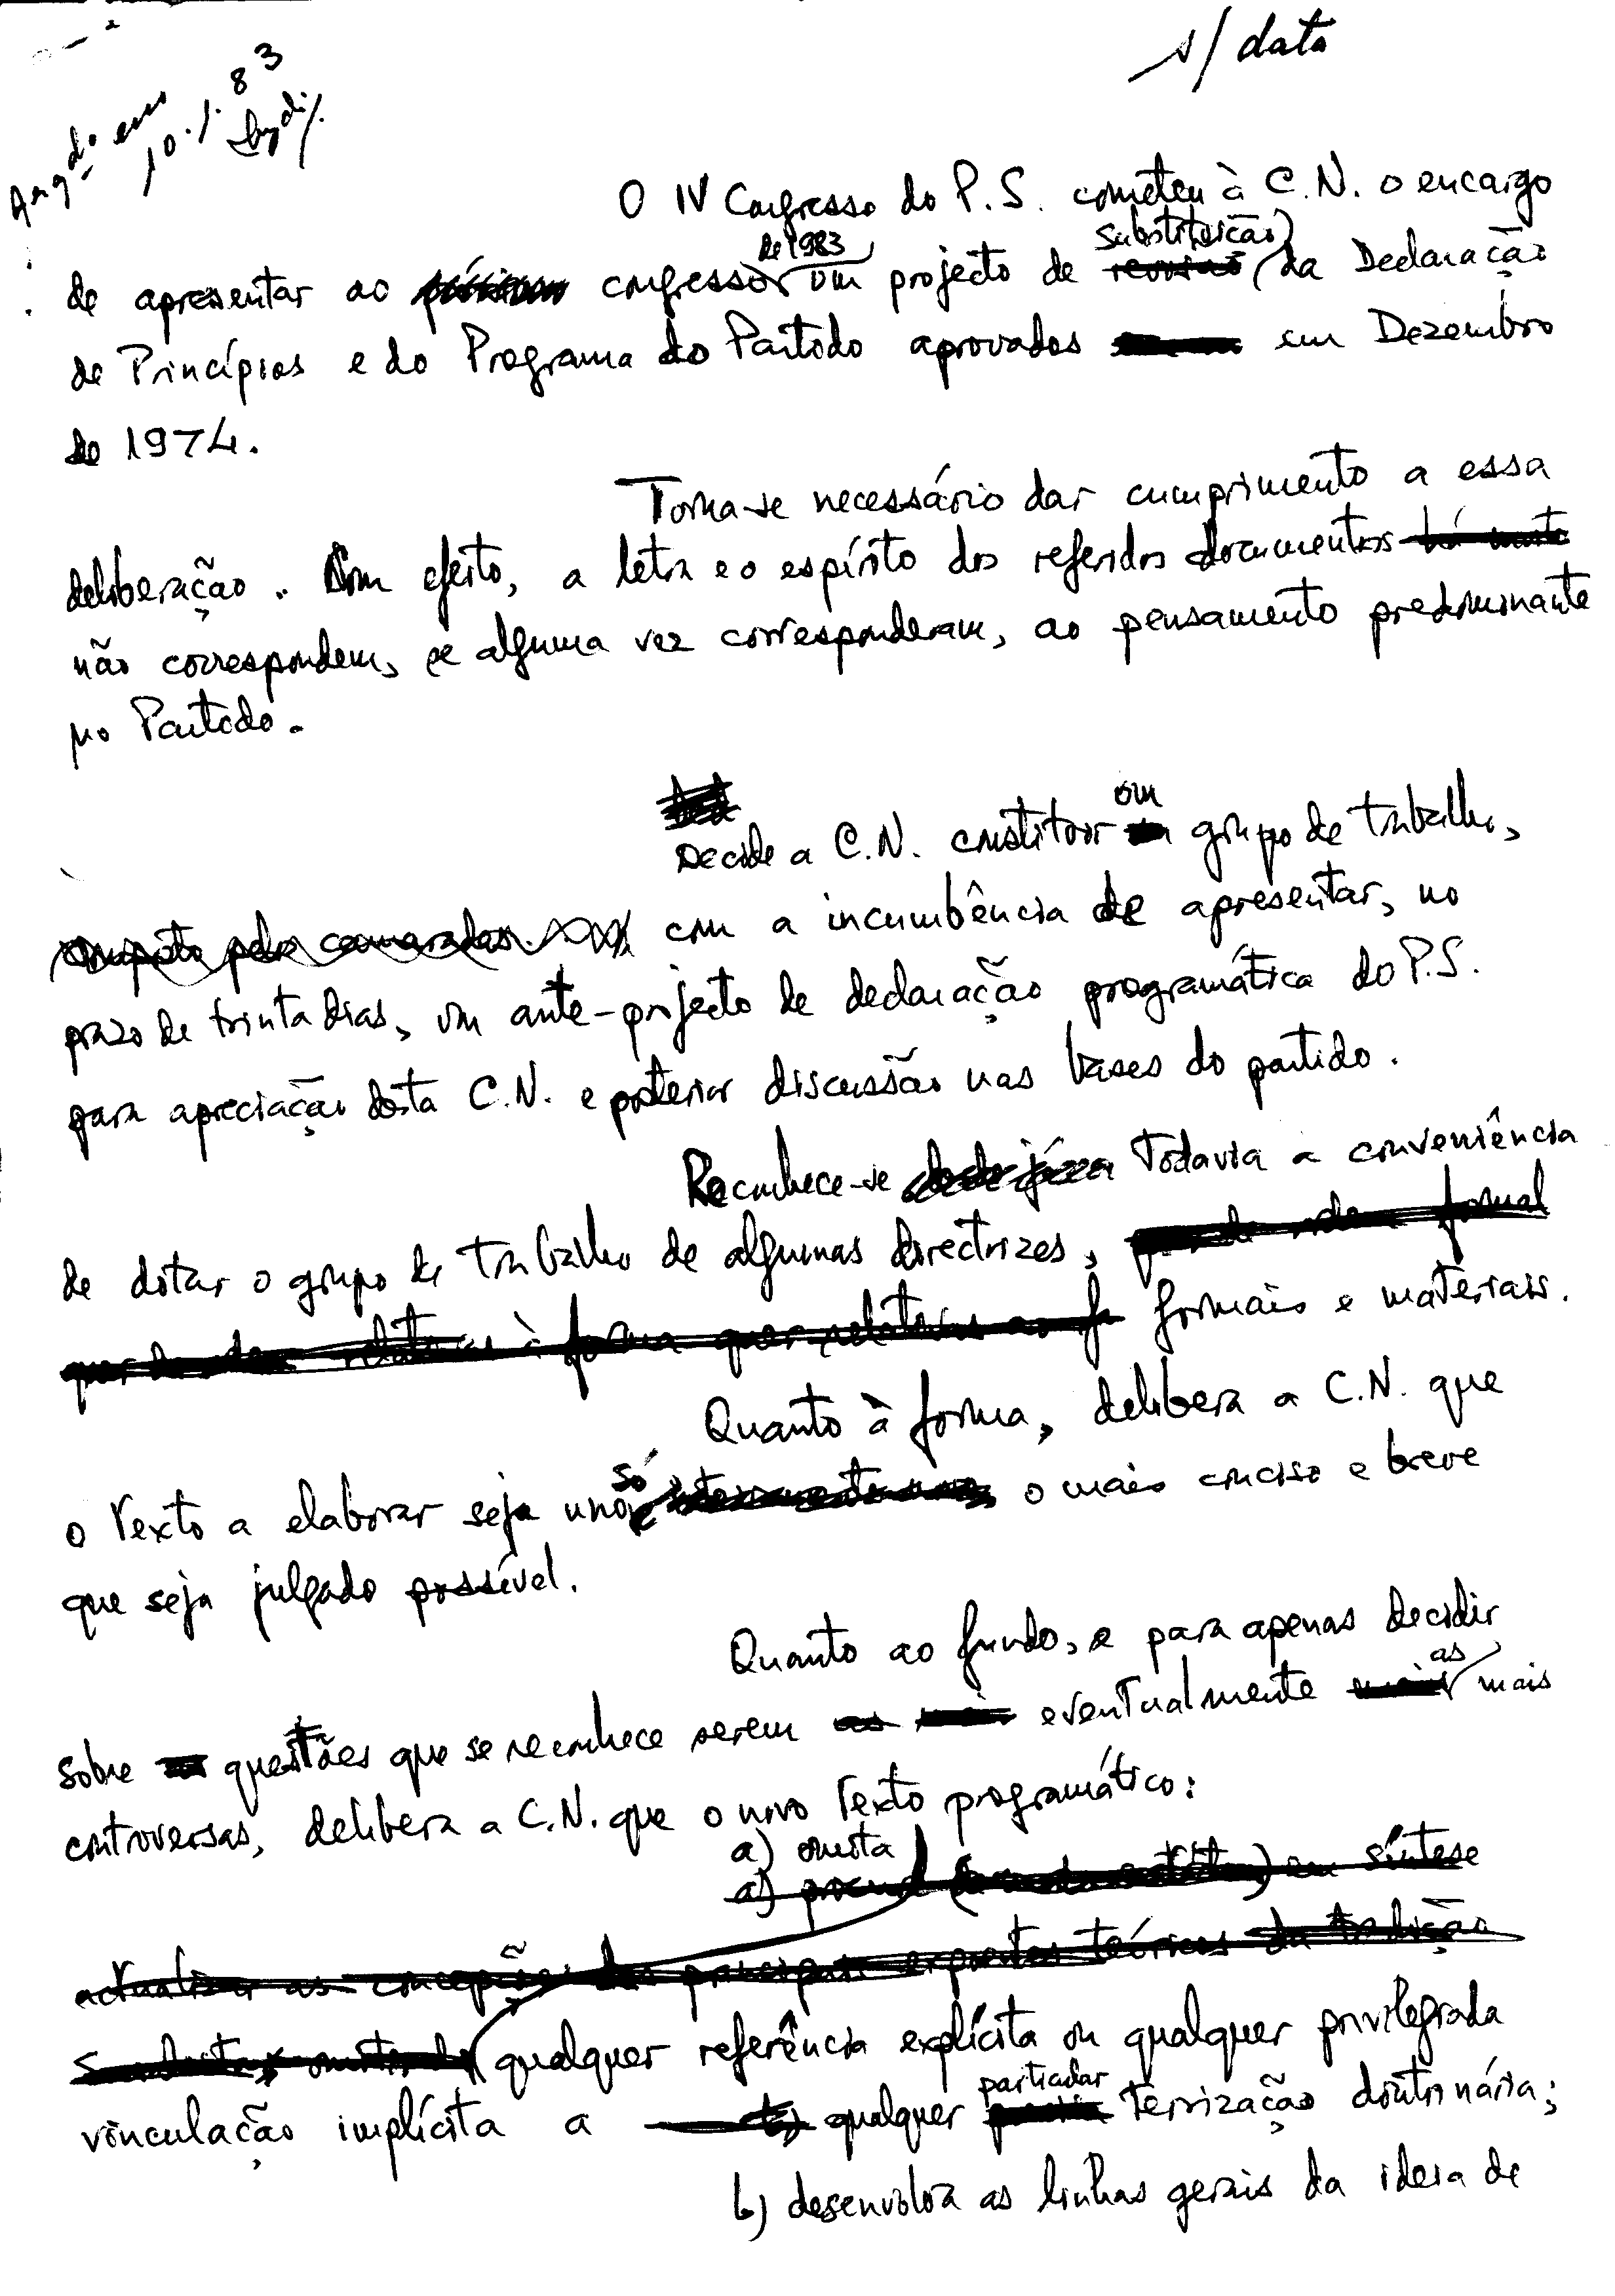 s/ data
Arq do em
10.1.83
O IV Congresso do P.S. cometeu à C.N. o encargo
de 1983 substituição
de apresentar ao congresso um projecto de revisão da Declaração
de Princípios e do Programa do Partido aprovados em Dezembro
de 1974.
Torna-se necessário dar cumprimento a essa
deliberação. Com efeito, a letra e o espírito dos referidos documentos há muito
não correspondem, se alguma vez corresponderam, ao pensamento predominante
no Partido.
um
Decide a C.N. constituir grupo de trabalho,
composto pelos camaradas com a incumbência de apresentar, no
prazo de trinta dias, um ante-projecto de declaração programática do P.S.
para apreciação desta C.N. e posterior discussão nas bases do partido.
Reconhece-se desde já todavia a conveniência
de dotar o grupo de trabalho de algumas directrizes, quer de ordem formal
quer de ordem relativas à forma quer relativas ao formais e materiais.
Quanto à forma, delibera a C.N. que
só
o texto a elaborar seja uno e o mais conciso e breve
que seja julgado possível.
Quanto ao fundo, e para apenas decidir
as
sobre questões que se reconhece serem as mais eventualmente mais mais
controversas, delibera a C.N. que o novo texto programático:
a) omita
a) em síntese
actualizar as concepções dos principais expoentes teóricos da tradição
omitindo qualquer referência explícita ou qualquer privilegiada
particular
vinculação implícita a b) qualquer teorização doutrinária;
b) desenvolva as linhas gerais da ideia de